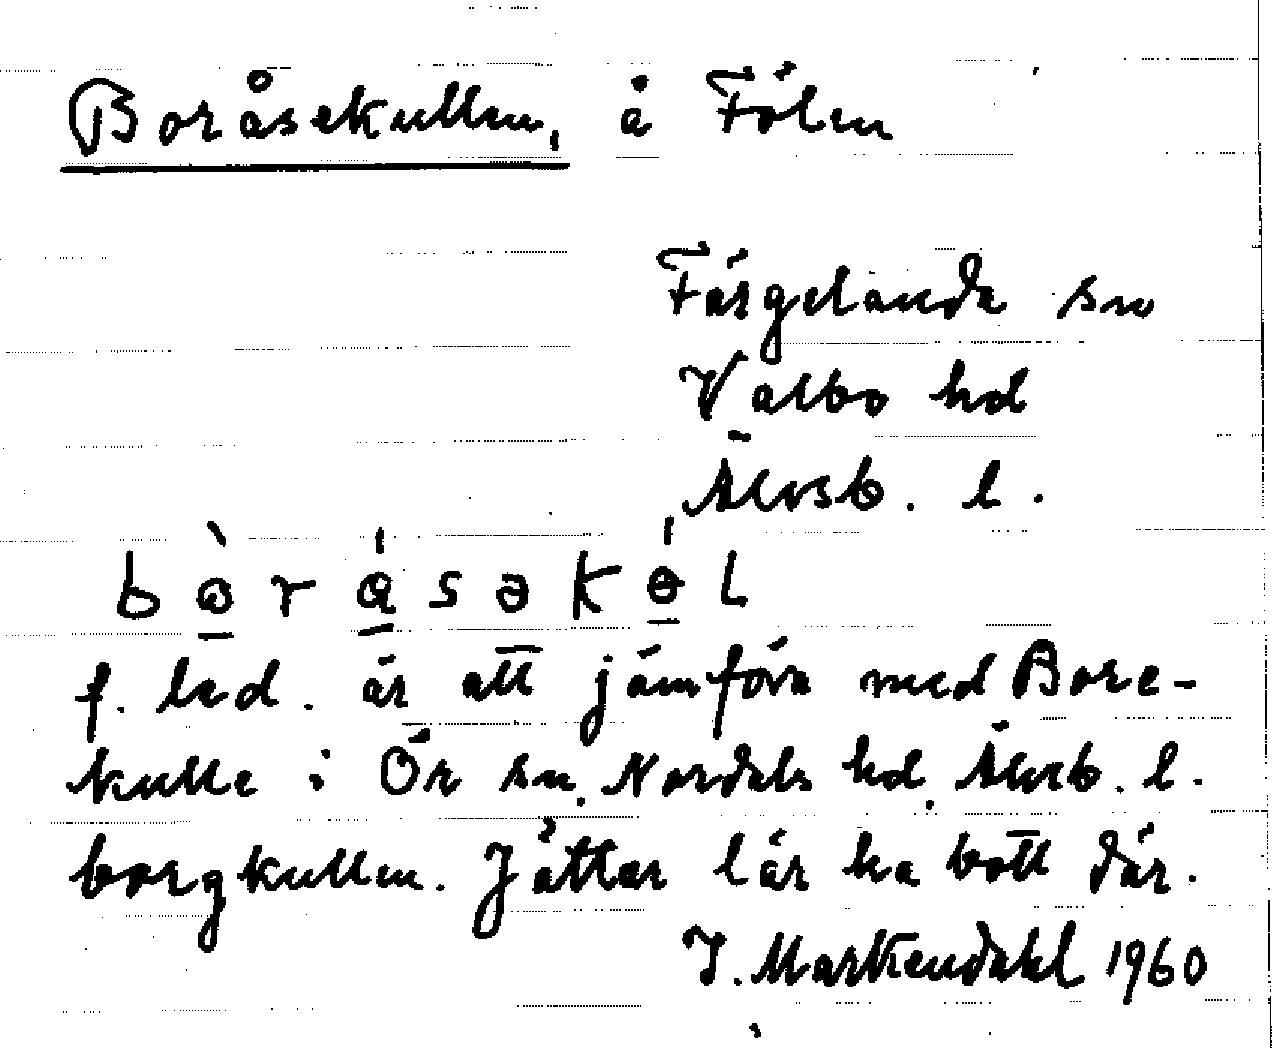 Boråsekullen, å Fölen
Färgelanda sn
Valbo hd
Älvsb. l.
bòrásəkɵ́l
f. led. är att jämföra med Bore-
kulle i Ör sn, Nordals hd, Älvsb. l.
borgkullen. Jättar lär ha bott där.
I. Markendahl 1960